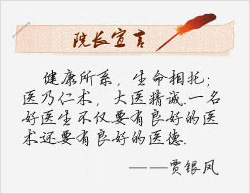 院长宣言
健康所系，生命相托；
医乃仁术，大医精诚.一名
好医生不仅要有良好的医
术还要有良好的医德.
——贾银凤